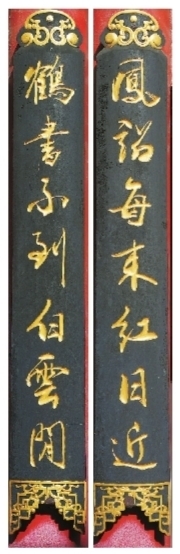 鳳詔每来紅日近
鶴書不到白雲閒